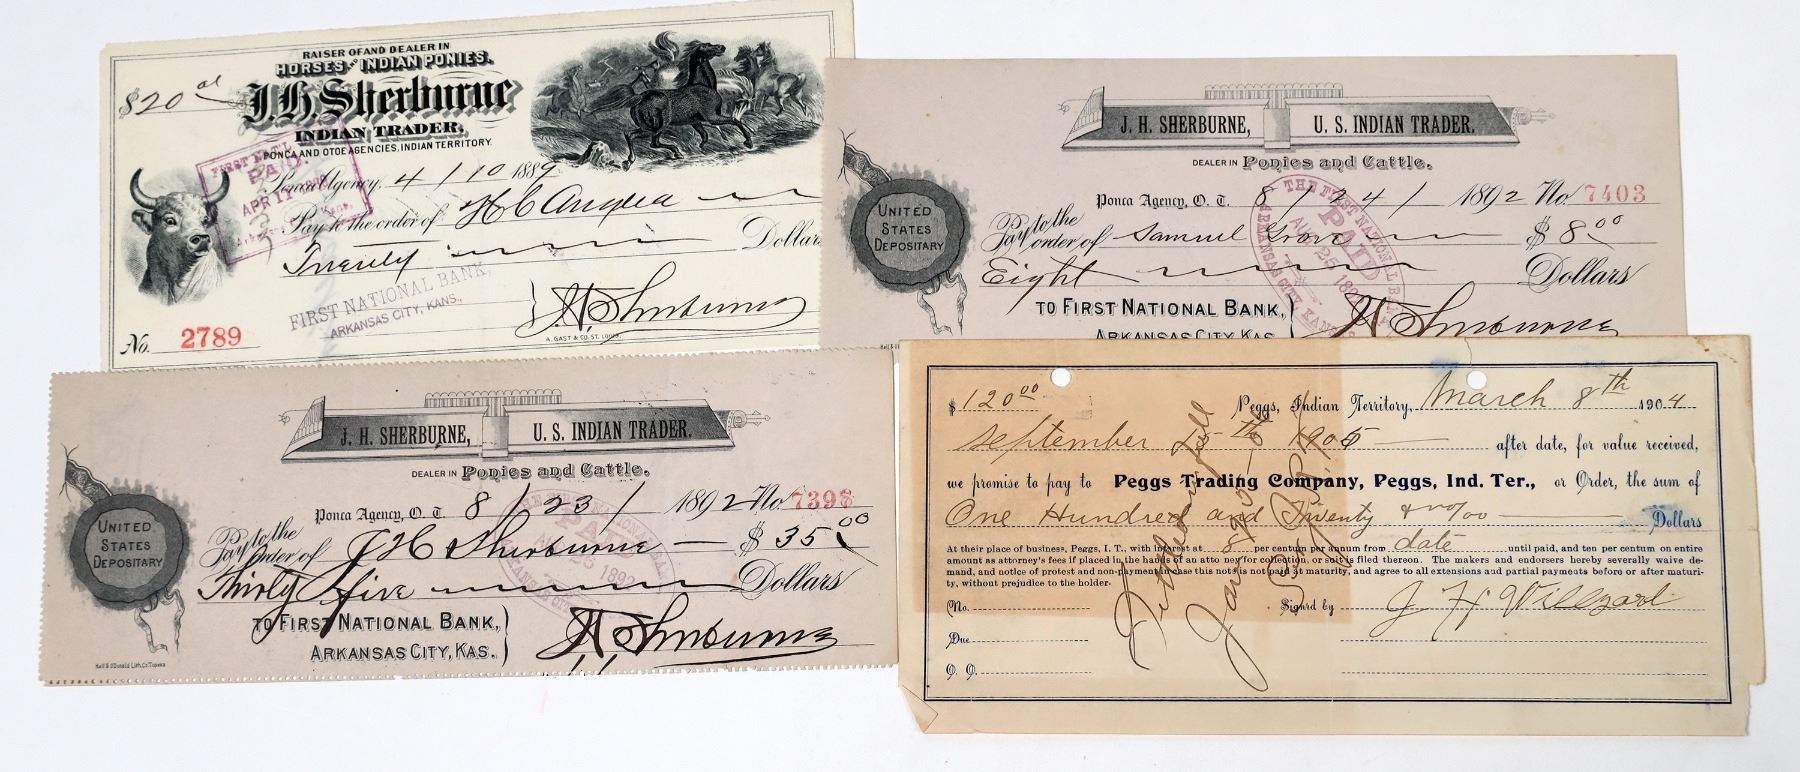 RAISER OF AND DEALER IN
HORSES AND INDIAN PONIES.
$20
J. H. Sherburne
INDIAN TRADER,
PONCA AND OTOE AGENCIES, INDIAN TERRITORY.
FIRST NAT'L
PAID
APR 11
Kans.
Ponca Agency, 4/10 1889
Pay to the order of H C
Twenty Dollars
FIRST NATIONAL BANK,
ARKANSAS CITY, KANS.
J H Sherburne
No. 2789
A. GAST & CO. ST. LOUIS.
J. H. SHERBURNE, U. S. INDIAN TRADER.
DEALER IN Ponies and Cattle.
UNITED
STATES
DEPOSITARY
Ponca Agency, O. T. 8/24/1892 No. 7403
Pay to the
order of Samuel Grove $8.00
Eight Dollars
THE FIRST NATIONAL
PAID
AUG 25 1892
ARKANSAS CITY, KANSAS
TO FIRST NATIONAL BANK,
ARKANSAS CITY, KAS.
J H Sherburne
J. H. SHERBURNE, U. S. INDIAN TRADER.
DEALER IN Ponies and Cattle.
UNITED
STATES
DEPOSITARY
Ponca Agency, O. T. 8/23/1892 No. 7398
Pay to the
order of J H Sherburne $35.00
Thirty five Dollars
PAID
1892
TO FIRST NATIONAL BANK,
ARKANSAS CITY, KAS.
J H Sherburne
Hall & O'Donald Lith. Co. Topeka
$120.00 Peggs, Indian Territory, March 8th 1904
September 1905 after date, for value received,
we promise to pay to Peggs Trading Company, Peggs, Ind. Ter., or Order, the sum of
One Hundred and Twenty & no/00 Dollars
At their place of business, Peggs, I. T., with interest at 8 per centum per annum from date until paid, and ten per centum on entire
amount as attorney's fees if placed in the hands of an attorney for collection, or suit is filed thereon. The makers and endorsers hereby severally waive de-
mand, and notice of protest and non-payment in case this note is not paid at maturity, and agree to all extensions and partial payments before or after maturi-
ty, without prejudice to the holder.
No. Signed by J H Willzard
Due
P. O.